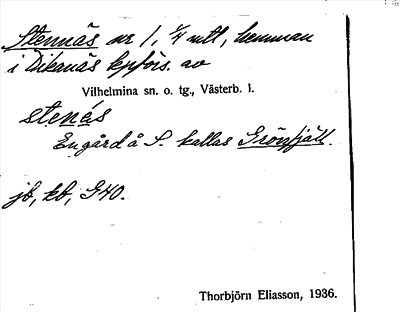 Stennäs nr 1, 1/4 mtl, hemman
i Dikanäs kpförs. av
Vilhelmina sn. o. tg., Västerb. l.
stenás
En gård å S. kallas Grönfjäll.
jb, kb, G40.
Thorbjörn Eliasson, 1936.